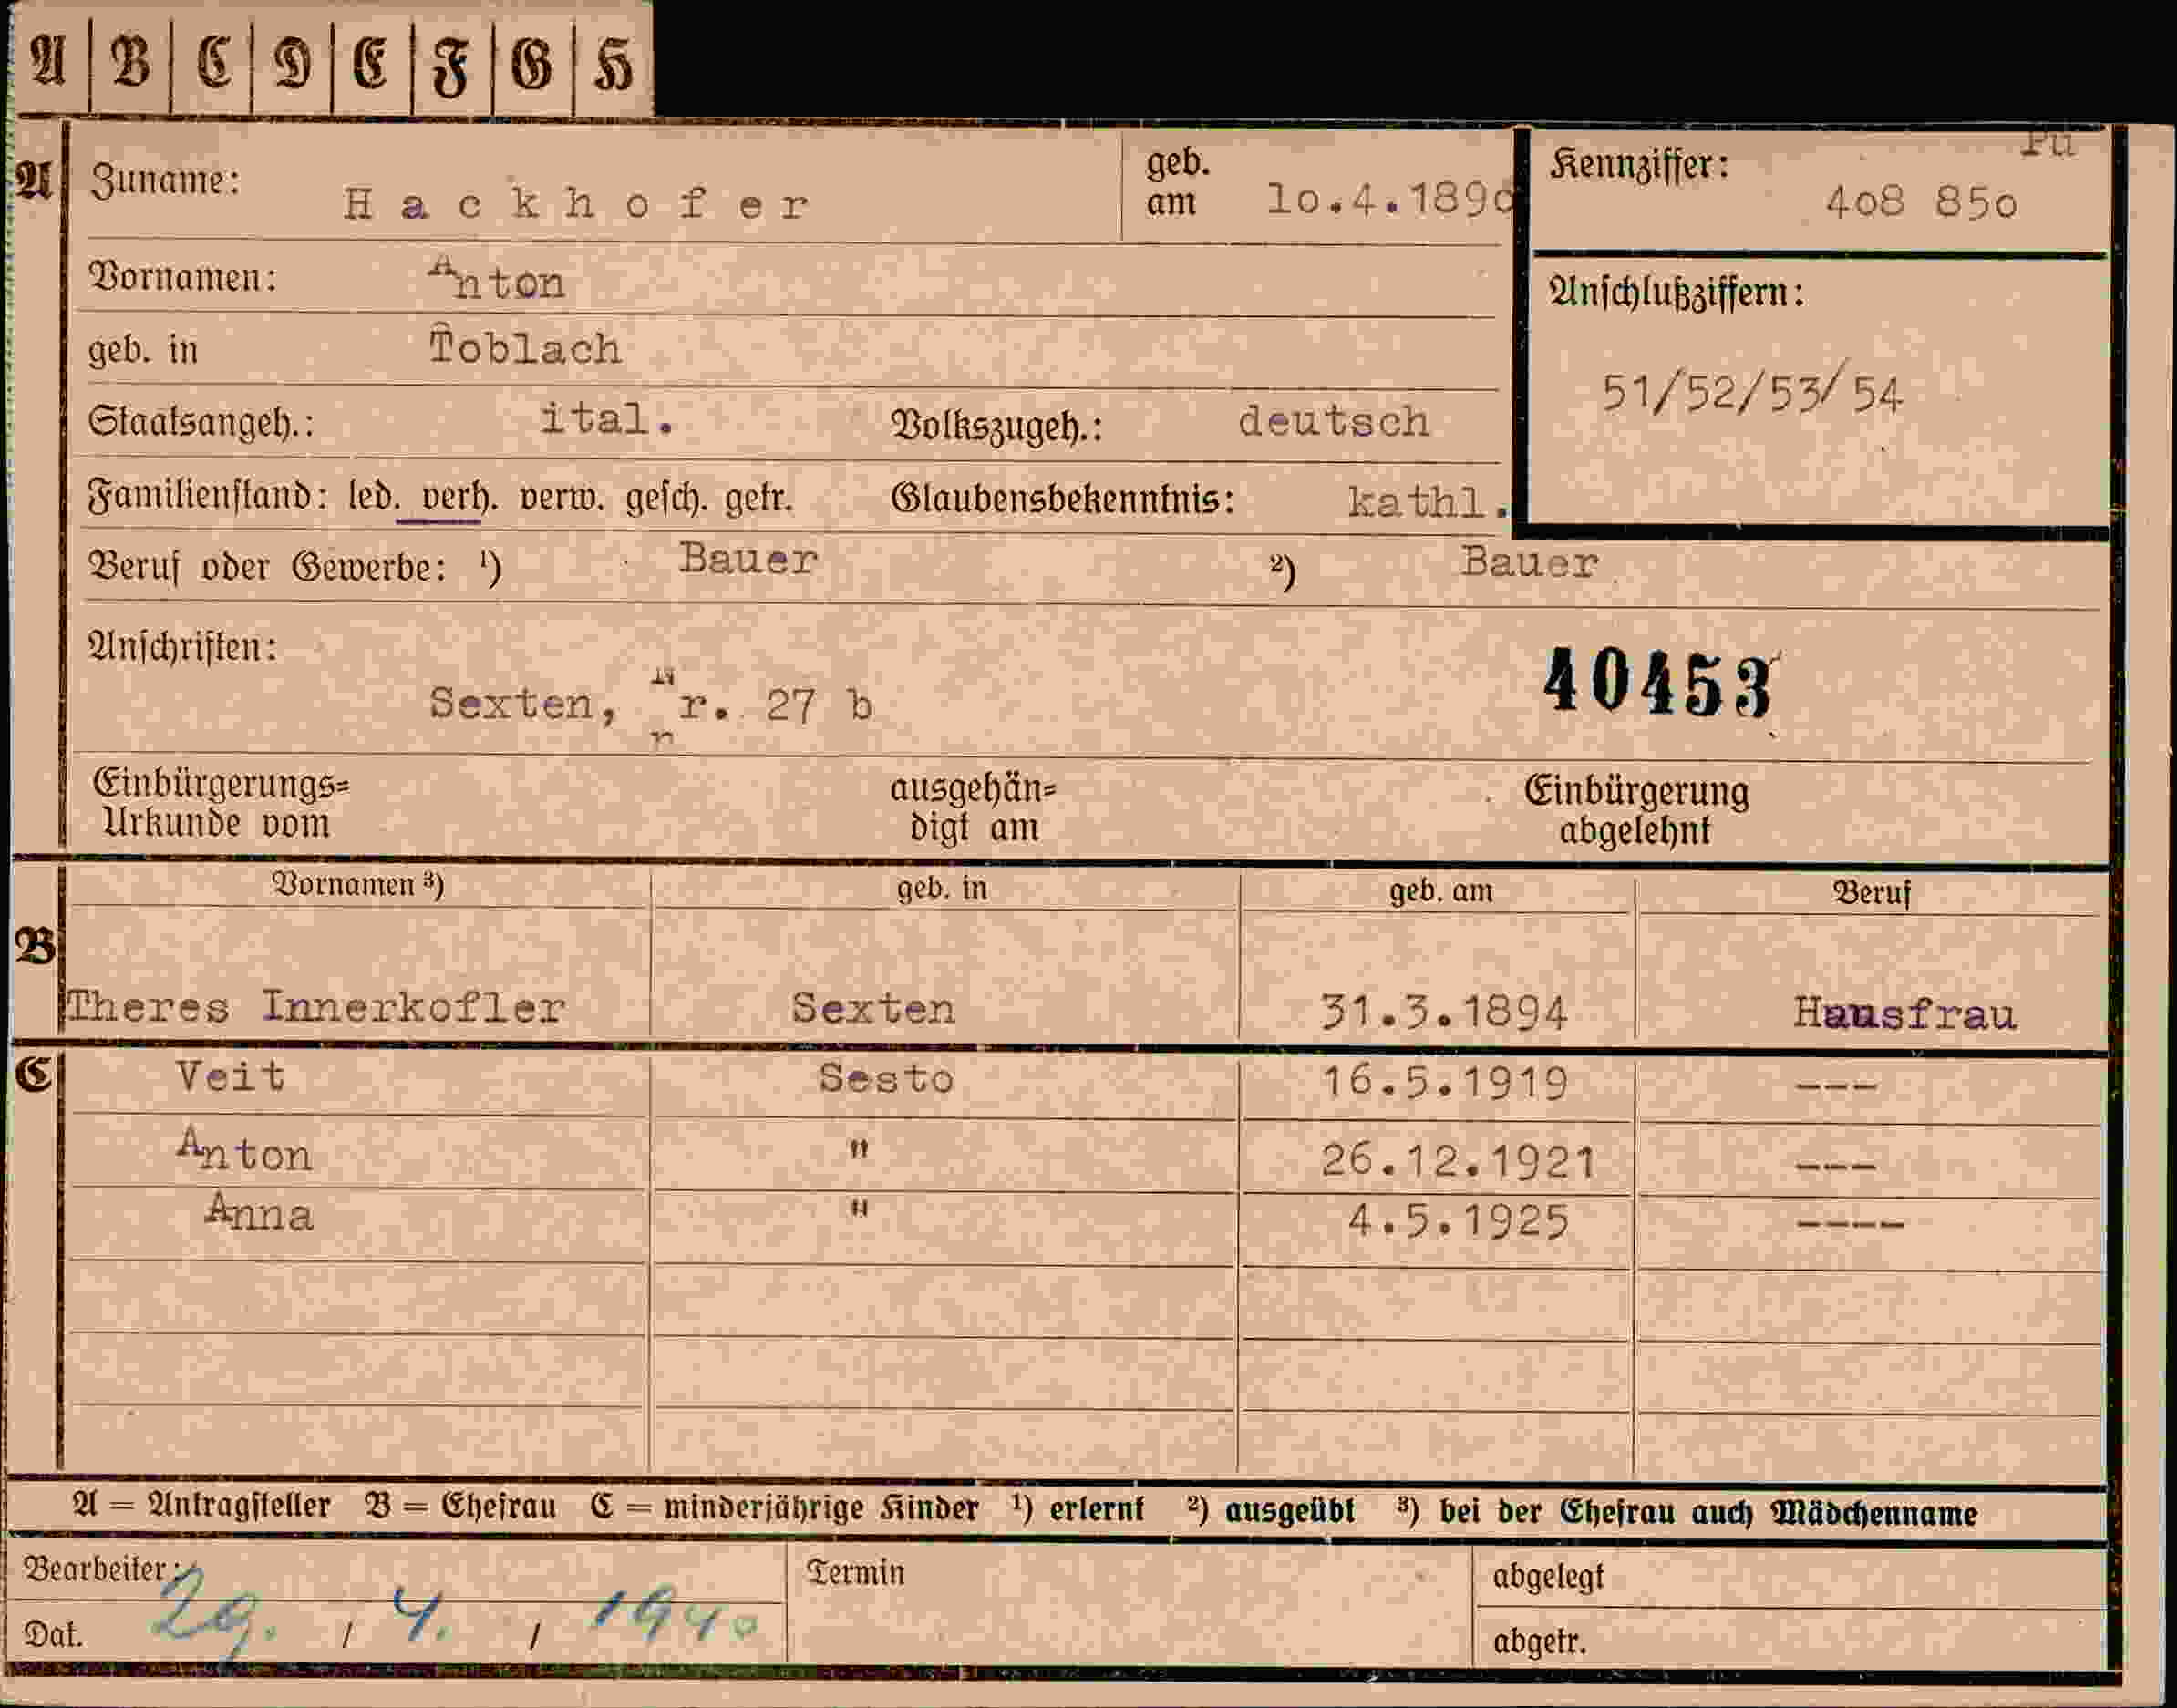 A B C D E F G H
Pu
A Zuname: Hackhofer geb. am 10.4.1890 Kennziffer: 408 850
Vornamen: Anton
geb. in Toblach Anschlußziffern:
51/52/53/54
Staatsangeh.: ital. Volkszugeh.: deutsch
Familienstand: led. verh. verw. gesch. getr. Glaubensbekenntnis: kathl.
Beruf oder Gewerbe: ¹) Bauer ²) Bauer
Anschriften: 40453
Sexten, Nr. 27 b
Einbürgerungs= ausgehän= Einbürgerung
Urkunde vom digt am abgelehnt
Vornamen ³) geb. in geb. am Beruf
B
Theres Innerkofler Sexten 31.3.1894 Hausfrau
C Veit Sesto 16.5.1919 ---
Anton " 26.12.1921 ---
Anna " 4.5.1925 ----
A = Antragsteller B = Ehefrau C = minderjährige Kinder ¹) erlernt ²) ausgeübt ³) bei der Ehefrau auch Mädchenname
Bearbeiter: Termin abgelegt
Dat. 29. / 4. / 1940 abgetr.